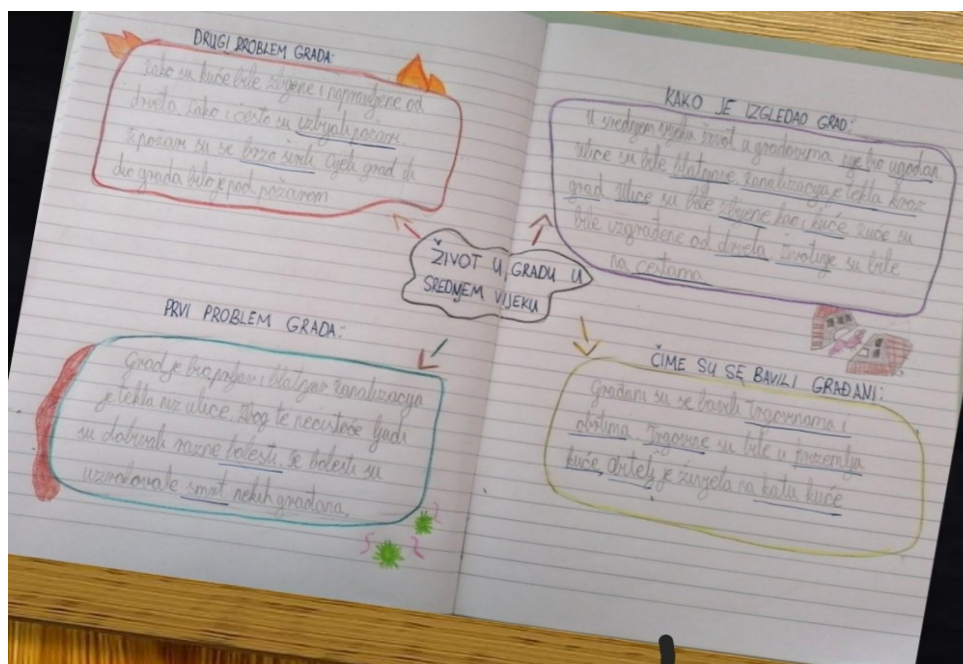 DRUGI PROBLEM GRADA:
Kako su kuće bile zbijene i napravljene od
drveta. Lako i često su izbijali požari.
Požari su se brzo širili. Cijeli grad ili
dio grada bilo je pod požarom
KAKO JE IZGLEDAO GRAD:
U srednjem vijeku život u gradovima nije bio ugodan
Ulice su bile blatnjave kanalizacija je tekla kroz
grad. Ulice su bile zbijene kao i kuće. Kuće su
bile uzgrađene od drveta. Životinje su bile
na cestama
ŽIVOT U GRADU U
SREDNJEM VIJEKU
PRVI PROBLEM GRADA:
Grad je bio prljav i blatnjav kanalizacija
je tekla niz ulice. Zbog te nečistoće ljudi
su dobivali razne bolesti. Te bolesti su
uzrokovale smrt nekih građana.
ČIME SU SE BAVILI GRAĐANI:
Građani su se bavili trgovinama i
obrtima. Trgovine su bile u prizemlju
kuće, obitelj je živjela na katu kuće